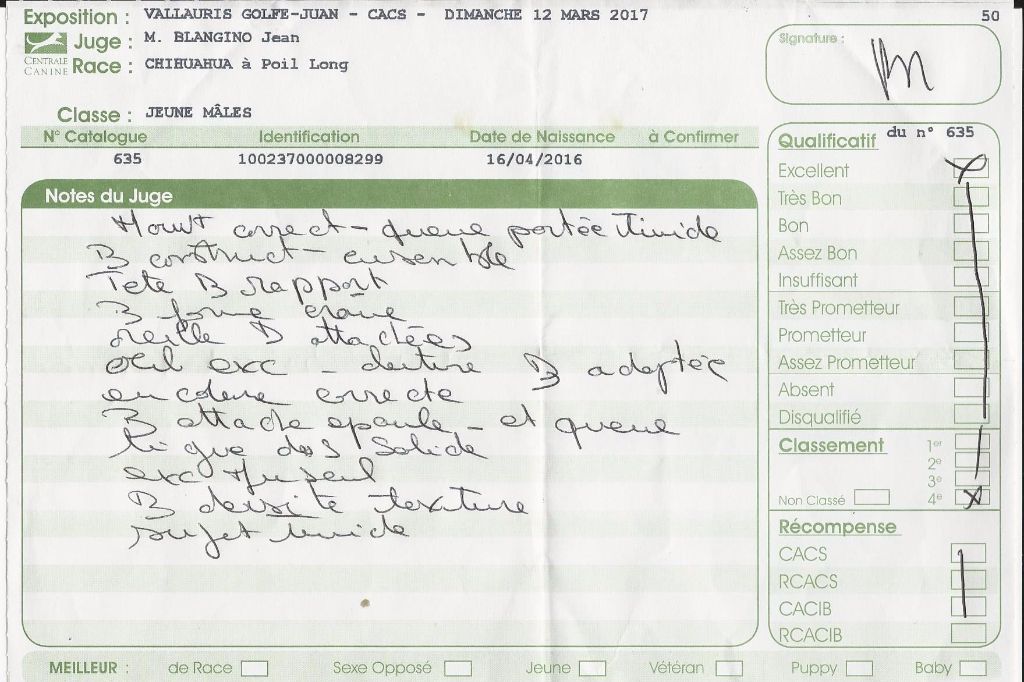 Exposition : VALLAURIS GOLFE-JUAN - CACS - DIMANCHE 12 MARS 2017
50
Juge : M. BLANGINO Jean
CENTRALE CANINE
Race : CHIHUAHUA à Poil Long
Signature :
Classe : JEUNE MÂLES
N° Catalogue Identification Date de Naissance à Confirmer
635 100237000008299 16/04/2016
Notes du Juge
correct - queue portée timide
B construct - ensemble
Tete B rapport
B forme crane
oreille B attachées
oeil exc - denture B adaptée
encolure correcte
B attache epaule - et queue
ligne dos solide
exc
B densité texture
sujet timide
Qualificatif du n° 635
Excellent
Très Bon
Bon
Assez Bon
Insuffisant
Très Prometteur
Prometteur
Assez Prometteur
Absent
Disqualifié
Classement 1er
2e
3e
Non Classé 4e
Récompense
CACS
RCACS
CACIB
RCACIB
MEILLEUR : de Race Sexe Opposé Jeune Vétéran Puppy Baby